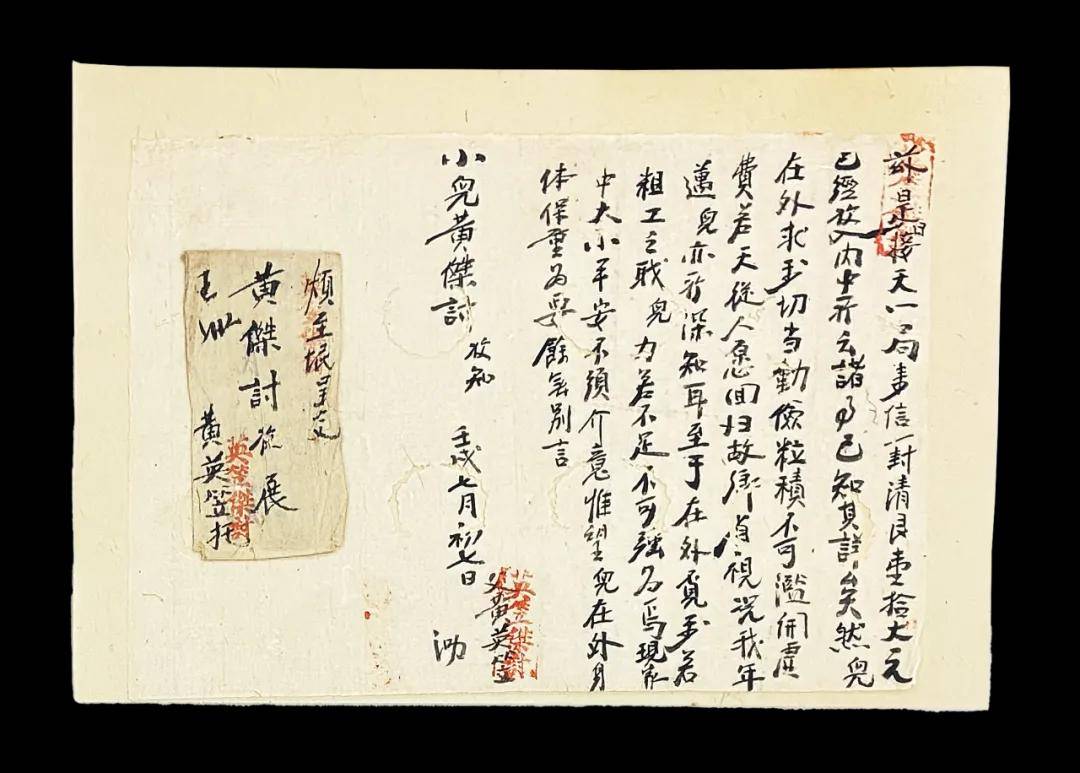 茲是日接天一局来信一封清艮壹拾大元
已經收入內中所云諸事已知其詳矣然兒
在外求利切当勤儉粒積不可濫用虛
費若天從人愿回归故鄉省視况我年
邁兒亦所深知耳至于在外覓利若
粗工之戝兒力若不足不可强為焉現家
中大小平安不須介意惟望兒在外身
体保重為要餘無別言
小兒黃傑討 收知
壬戌七月初七日
父黃英笠 泐
英笠傑討
煩至垊呈交
黃傑討收展
黃英笠托
英笠傑討